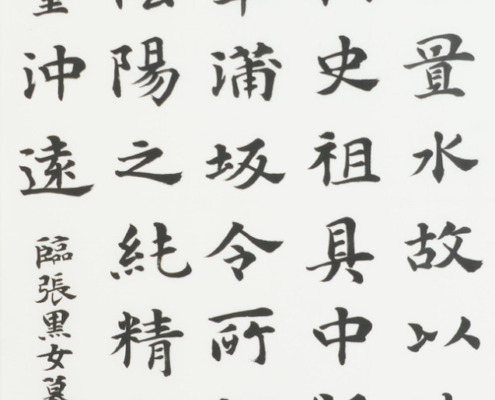 置水故以
史祖具中
蒲坂令所
陽之純精
沖遠
臨張黑女墓